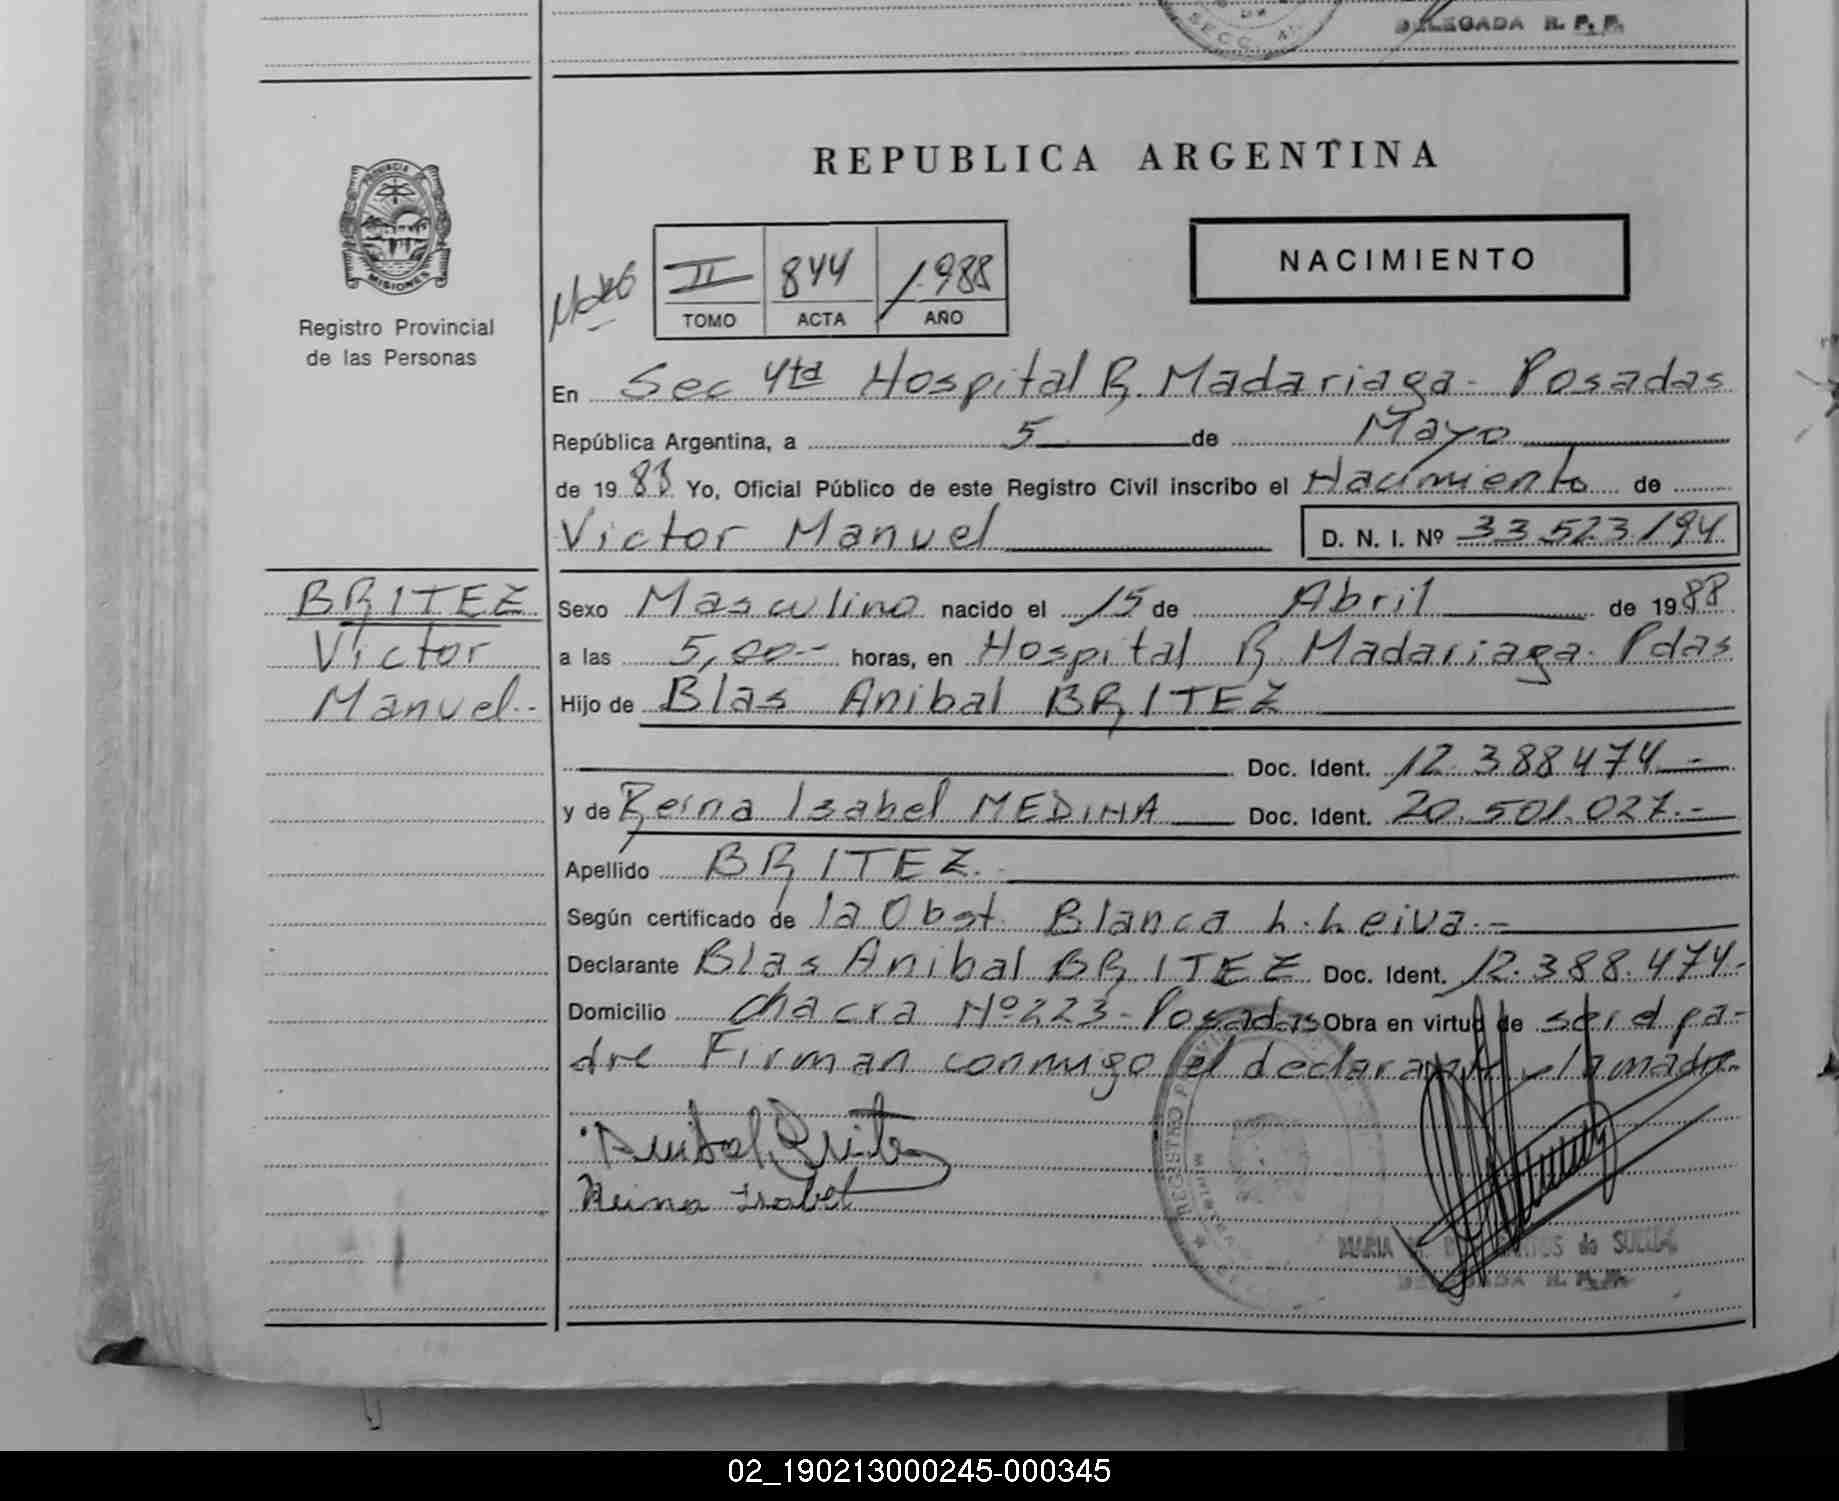 SECC.
DELEGADA R. P. P.
PROVINCIA
MISIONES
Registro Provincial
de las Personas
REPUBLICA ARGENTINA
II 844 1.988
TOMO ACTA AÑO
NACIMIENTO
En Sec 4ta Hospital R. Madariaga - Posadas
República Argentina, a 5 de Mayo
de 1988 Yo, Oficial Público de este Registro Civil inscribo el Nacimiento de
Victor Manuel D. N. I. Nº 33 523 194
BRITEZ
Victor
Manuel.-
Sexo Masculino nacido el 15 de Abril de 1988
a las 5,00.- horas, en Hospital R. Madariaga. Pdas
Hijo de Blas Anibal BRITEZ
Doc. Ident. 12.388474.-
y de Reina Isabel MEDINA Doc. Ident. 20.501.027.-
Apellido BRITEZ.
Según certificado de la Obst. Blanca L. Leiva.-
Declarante Blas Anibal BRITEZ Doc. Ident. 12.388.474.-
Domicilio Chacra Nº 223 - Posadas Obra en virtud de ser el pa-
dre Firman conmigo el declarante y la madre.
Anibal Britez
Reina Isabel
REGISTRO
MARIA de
DELEGADA R. P. P.
02_190213000245-000345